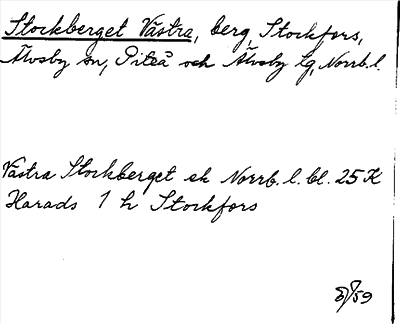 Stockberget Västra, berg, Stockfors,
Älvsby sn, Piteå och Älvsby tg, Norrb. l.
Västra Stockberget ek Norrb. l. bl. 25 K
Harads 1 h Stockfors